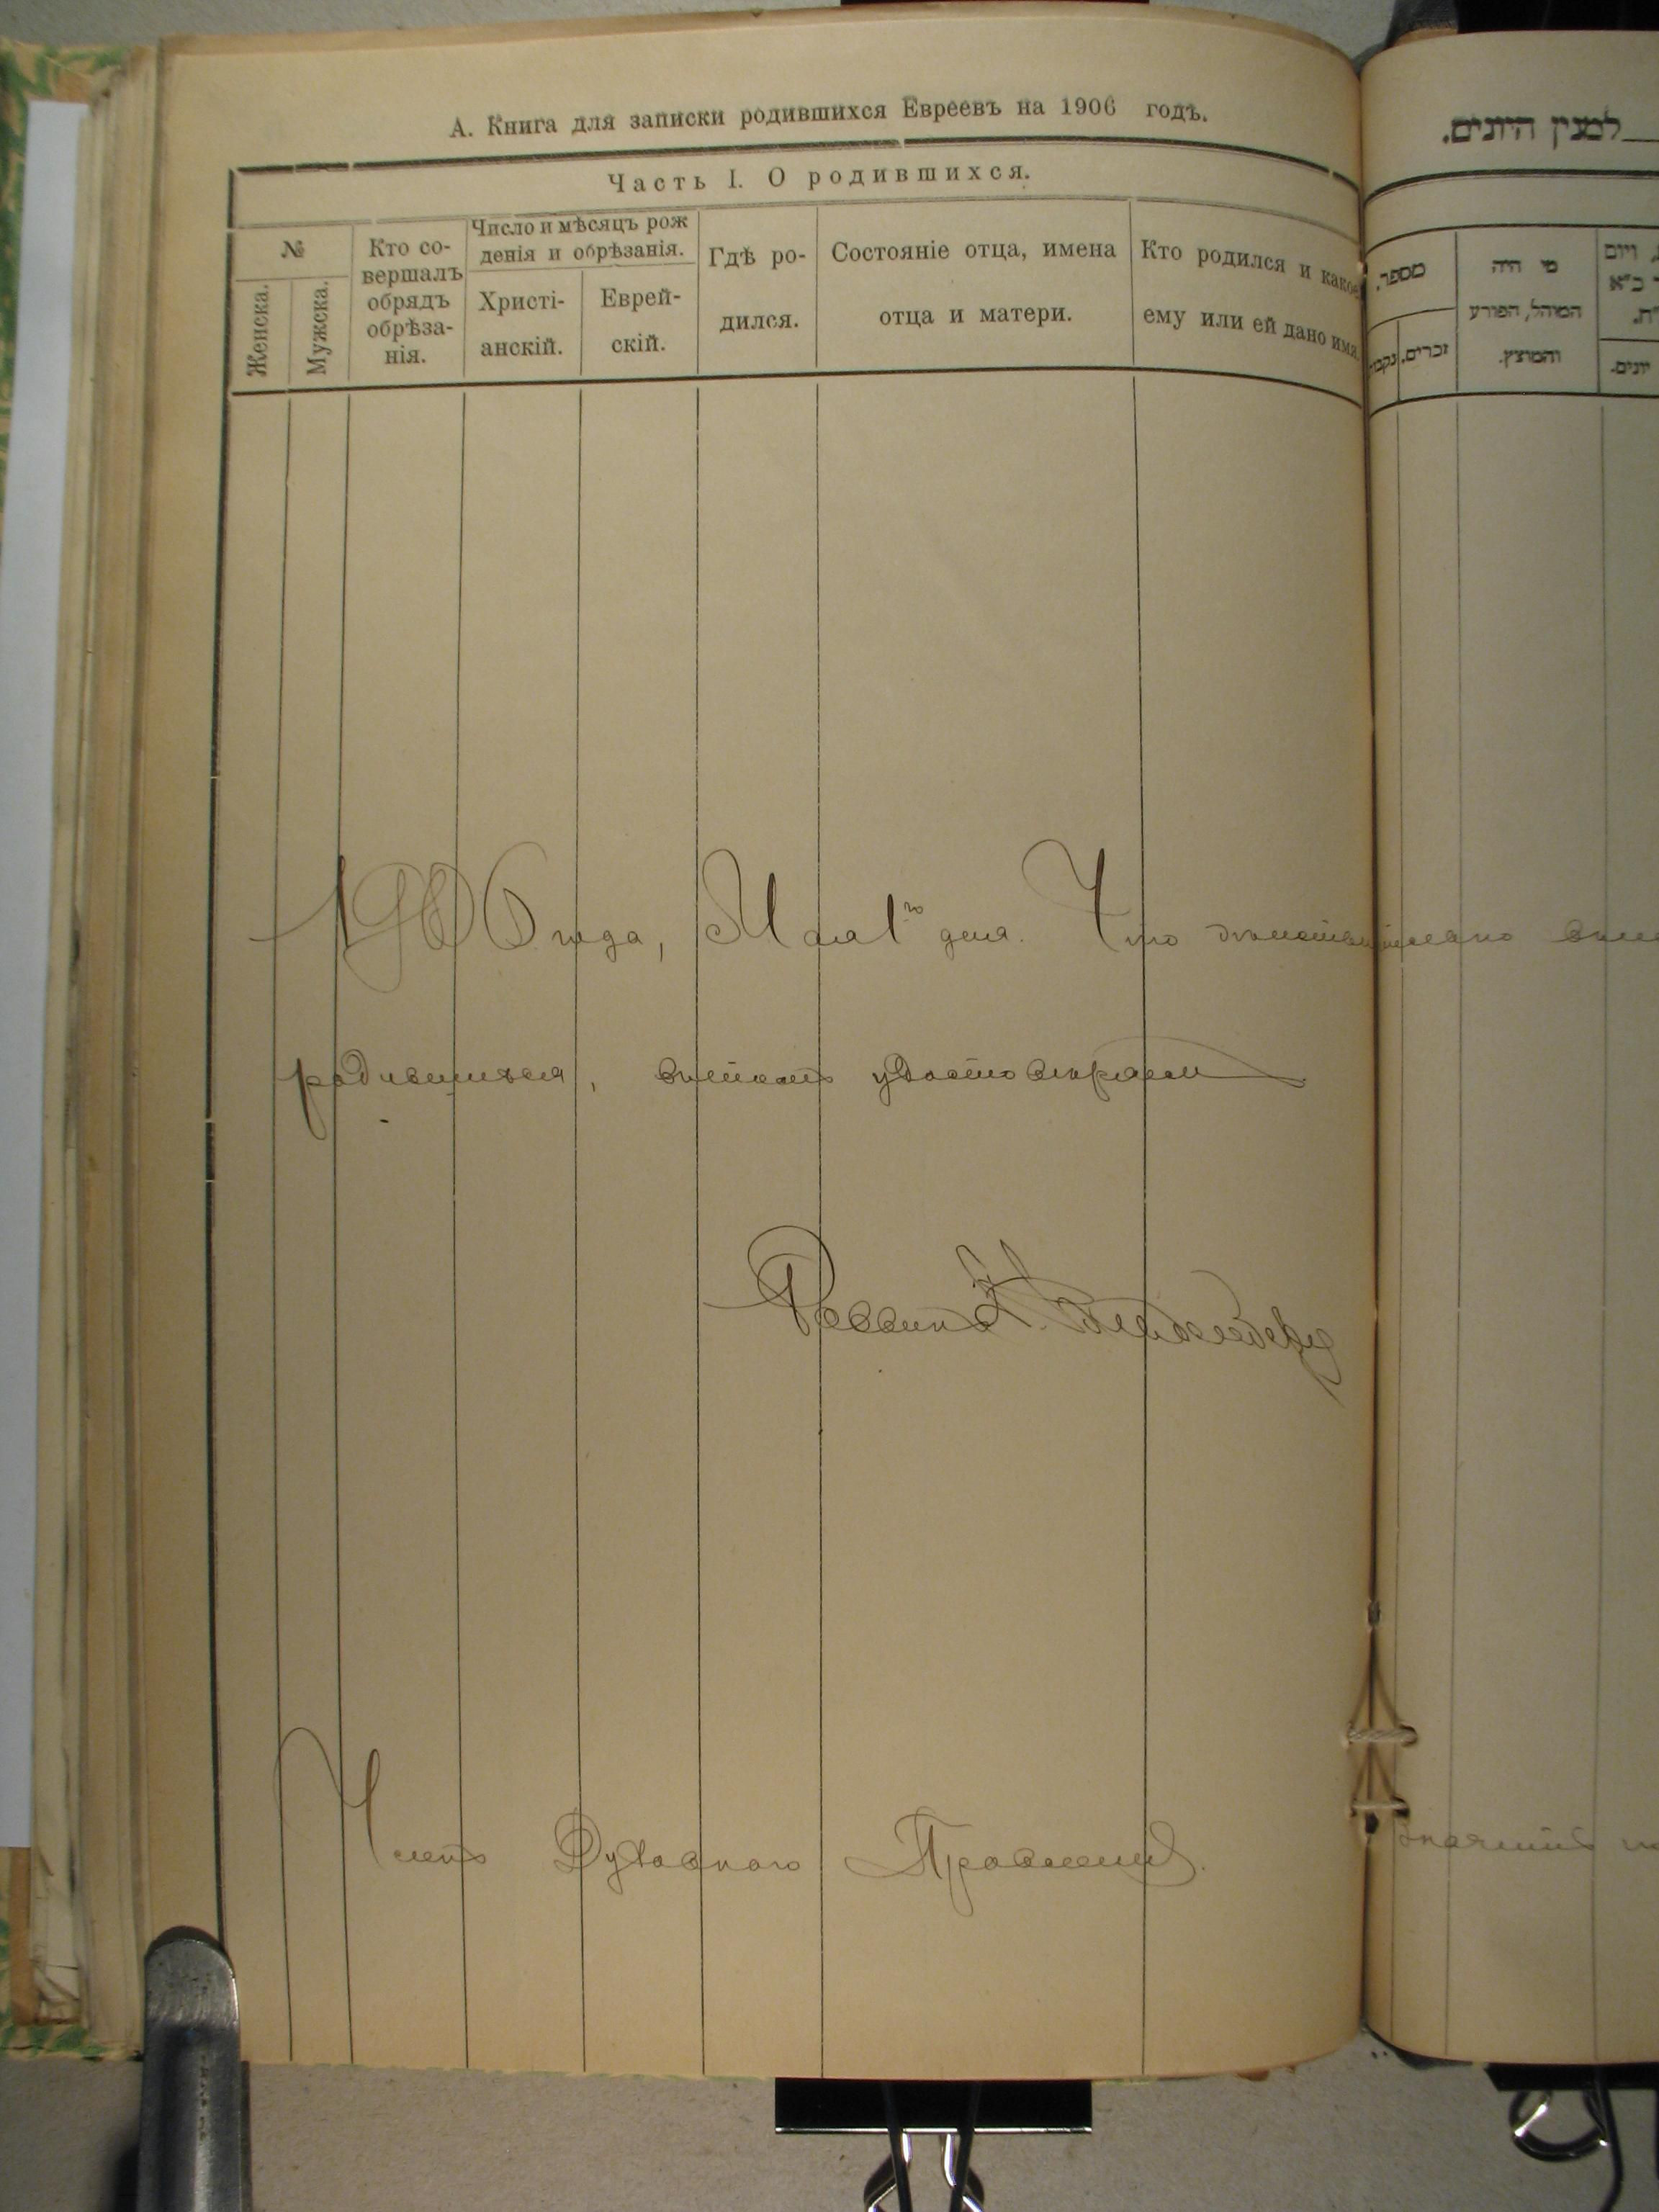 А. Книга для записки родившихся Евреевъ на 1906 годъ.
Часть I. О родившихся.
№
Женска.
Мужска.
Кто со-
вершалъ
обрядъ
обрѣза-
нія.
Число и мѣсяцъ рож
денія и обрѣзанія.
Христі-
анскій.
Еврей-
скій.
Гдѣ ро-
дился.
Состояніе отца, имена
отца и матери.
Кто родился и какое
ему или ей дано имя.
1906 года, Мая 1го дня. Что
родившихся, удостовѣряемъ
Раввинъ
Членъ Духовнаго Правленія.
למנין היונים.
מספר.
זכרים.
נקבו
מי היה
המוהל, הפורע
והמוצץ.
ויום
כ"א
ית.
יונים.